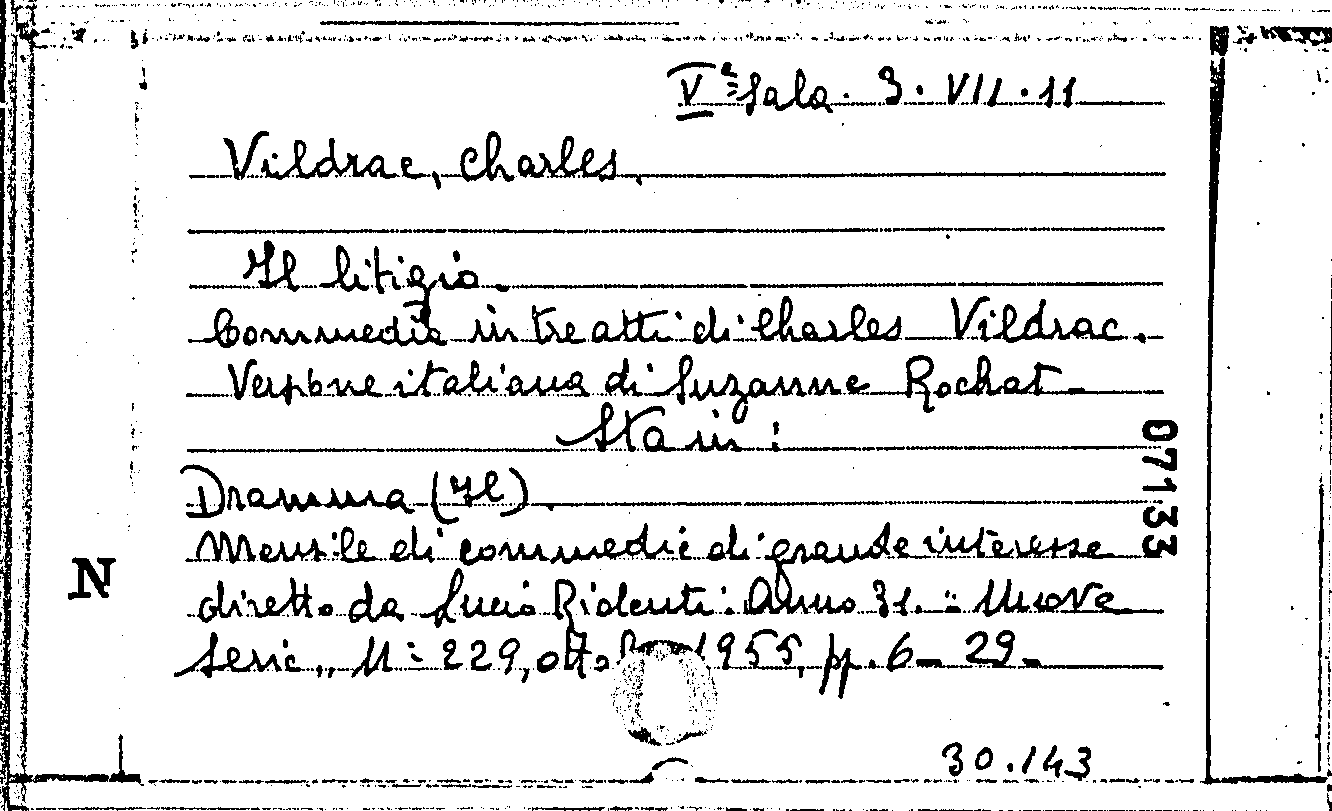 Vª Sala. 3. VII. 11
Vildrac, Charles.
Il litigio.
Commedia in tre atti di Charles Vildrac.
Versione italiana di Suzanne Rochat-
Sta in:
Dramma (Il).
Mensile di commedie di grande interesse
diretto da Lucio Ridenti. Anno 31. = Nuova
Serie, N= 229, ottobre 1955, pp. 6- 29-
30.143
07133
N